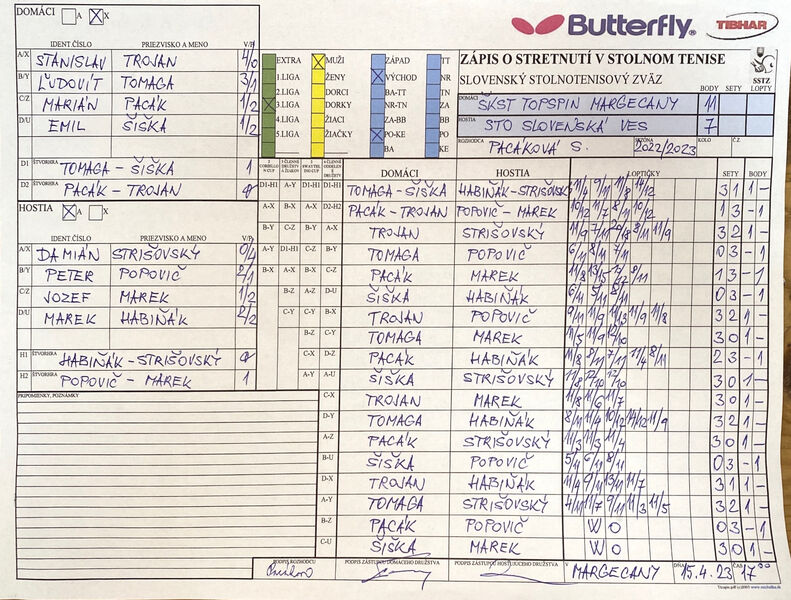 DOMÁCI A X
Butterfly TIBHAR
IDENT.ČÍSLO PRIEZVISKO A MENO V/P
A/X STANISLAV TROJAN 4/0
B/Y ĽUDOVÍT TOMAGA 3/1
C/Z MARIÁN PACÁK 1/2
D/U EMIL ŠIŠKA 1/2
D1 ŠTVORHRA TOMAGA - ŠIŠKA 1
D2 ŠTVORHRA PACÁK - TROJAN
EXTRA MUŽI ZÁPAD TT
1.LIGA ŽENY VÝCHOD NR
2.LIGA DORCI BA-TT TN
3.LIGA DORKY NR-TN ZA
4.LIGA ŽIACI ZA-BB BB
5.LIGA ŽIAČKY PO-KE PO
BA KE
ZÁPIS O STRETNUTÍ V STOLNOM TENISE
SLOVENSKÝ STOLNOTENISOVÝ ZVÄZ SSTZ
BODY SETY LOPTY
DOMÁCI ŠKST TOPSPIN MARGECANY 11
HOSTIA STO SLOVENSKÁ VES 7
ROZHODCA PACÁKOVÁ S. SEZÓNA 2022/2023 KOLO Č.Z.
HOSTIA A X
IDENT.ČÍSLO PRIEZVISKO A MENO V/P
A/X DAMIÁN STRIŠOVSKÝ 0/4
B/Y PETER POPOVIČ 2/1
C/Z JOZEF MAREK 1/2
D/U MAREK HABIŇÁK 2/2
H1 ŠTVORHRA HABIŇÁK - STRIŠOVSKÝ
H2 ŠTVORHRA POPOVIČ - MAREK 1
PRIPOMIENKY, POZNÁMKY
DOMÁCI HOSTIA LOPTIČKY SETY BODY
D1-H1 A-Y D1-H1 D1-H1 TOMAGA - ŠIŠKA HABIŇÁK - STRIŠOVSKÝ 11/4 9/11 11/8 14/12 3 1 1 -
A-X B-X A-X D2-H2 PACÁK - TROJAN POPOVIČ - MAREK 10/12 11/7 8/11 10/12 1 3 - 1
B-Y C-Z B-Y A-X TROJAN STRIŠOVSKÝ 3 2 1
A-Z D1-H1 C-Z B-Y TOMAGA POPOVIČ 6/11 8/11 7/11 0 3 - 1
B-X A-X B-X C-Z PACÁK MAREK 1 3 - 1
B-Z A-Z D-U ŠIŠKA HABIŇÁK 0 3 - 1
C-Y C-Y B-X TROJAN POPOVIČ 3 2 1
B-Z C-Y TOMAGA MAREK 11/5 11/9 12/10 3 0 1 -
C-X D-Z PACÁK HABIŇÁK 2 3 - 1
A-Y A-U ŠIŠKA STRIŠOVSKÝ 11/8 12/10 12/10 3 0 1 -
C-X TROJAN MAREK 11/8 11/6 11/7 3 0 1
D-Y TOMAGA HABIŇÁK 3 2 1
A-Z PACÁK STRIŠOVSKÝ 11/3 11/3 11/4 3 0 1
B-U ŠIŠKA POPOVIČ 5/11 6/11 8/11 0 3 - 1
D-X TROJAN HABIŇÁK 11/4 9/11 13/11 11/7 3 1 1
A-Y TOMAGA STRIŠOVSKÝ 4/11 11/7 9/11 11/3 11/5 3 2 1
B-Z PACÁK POPOVIČ W O 0 3 - 1
C-U ŠIŠKA MAREK W O 3 0 1 -
PODPIS ROZHODCU PODPIS ZÁSTUPCU DOMÁCEHO DRUŽSTVA PODPIS ZÁSTUPCU HOSŤUJÚCEHO DRUŽSTVA V MARGECANY DŇA 15.4.23 ČAS 17